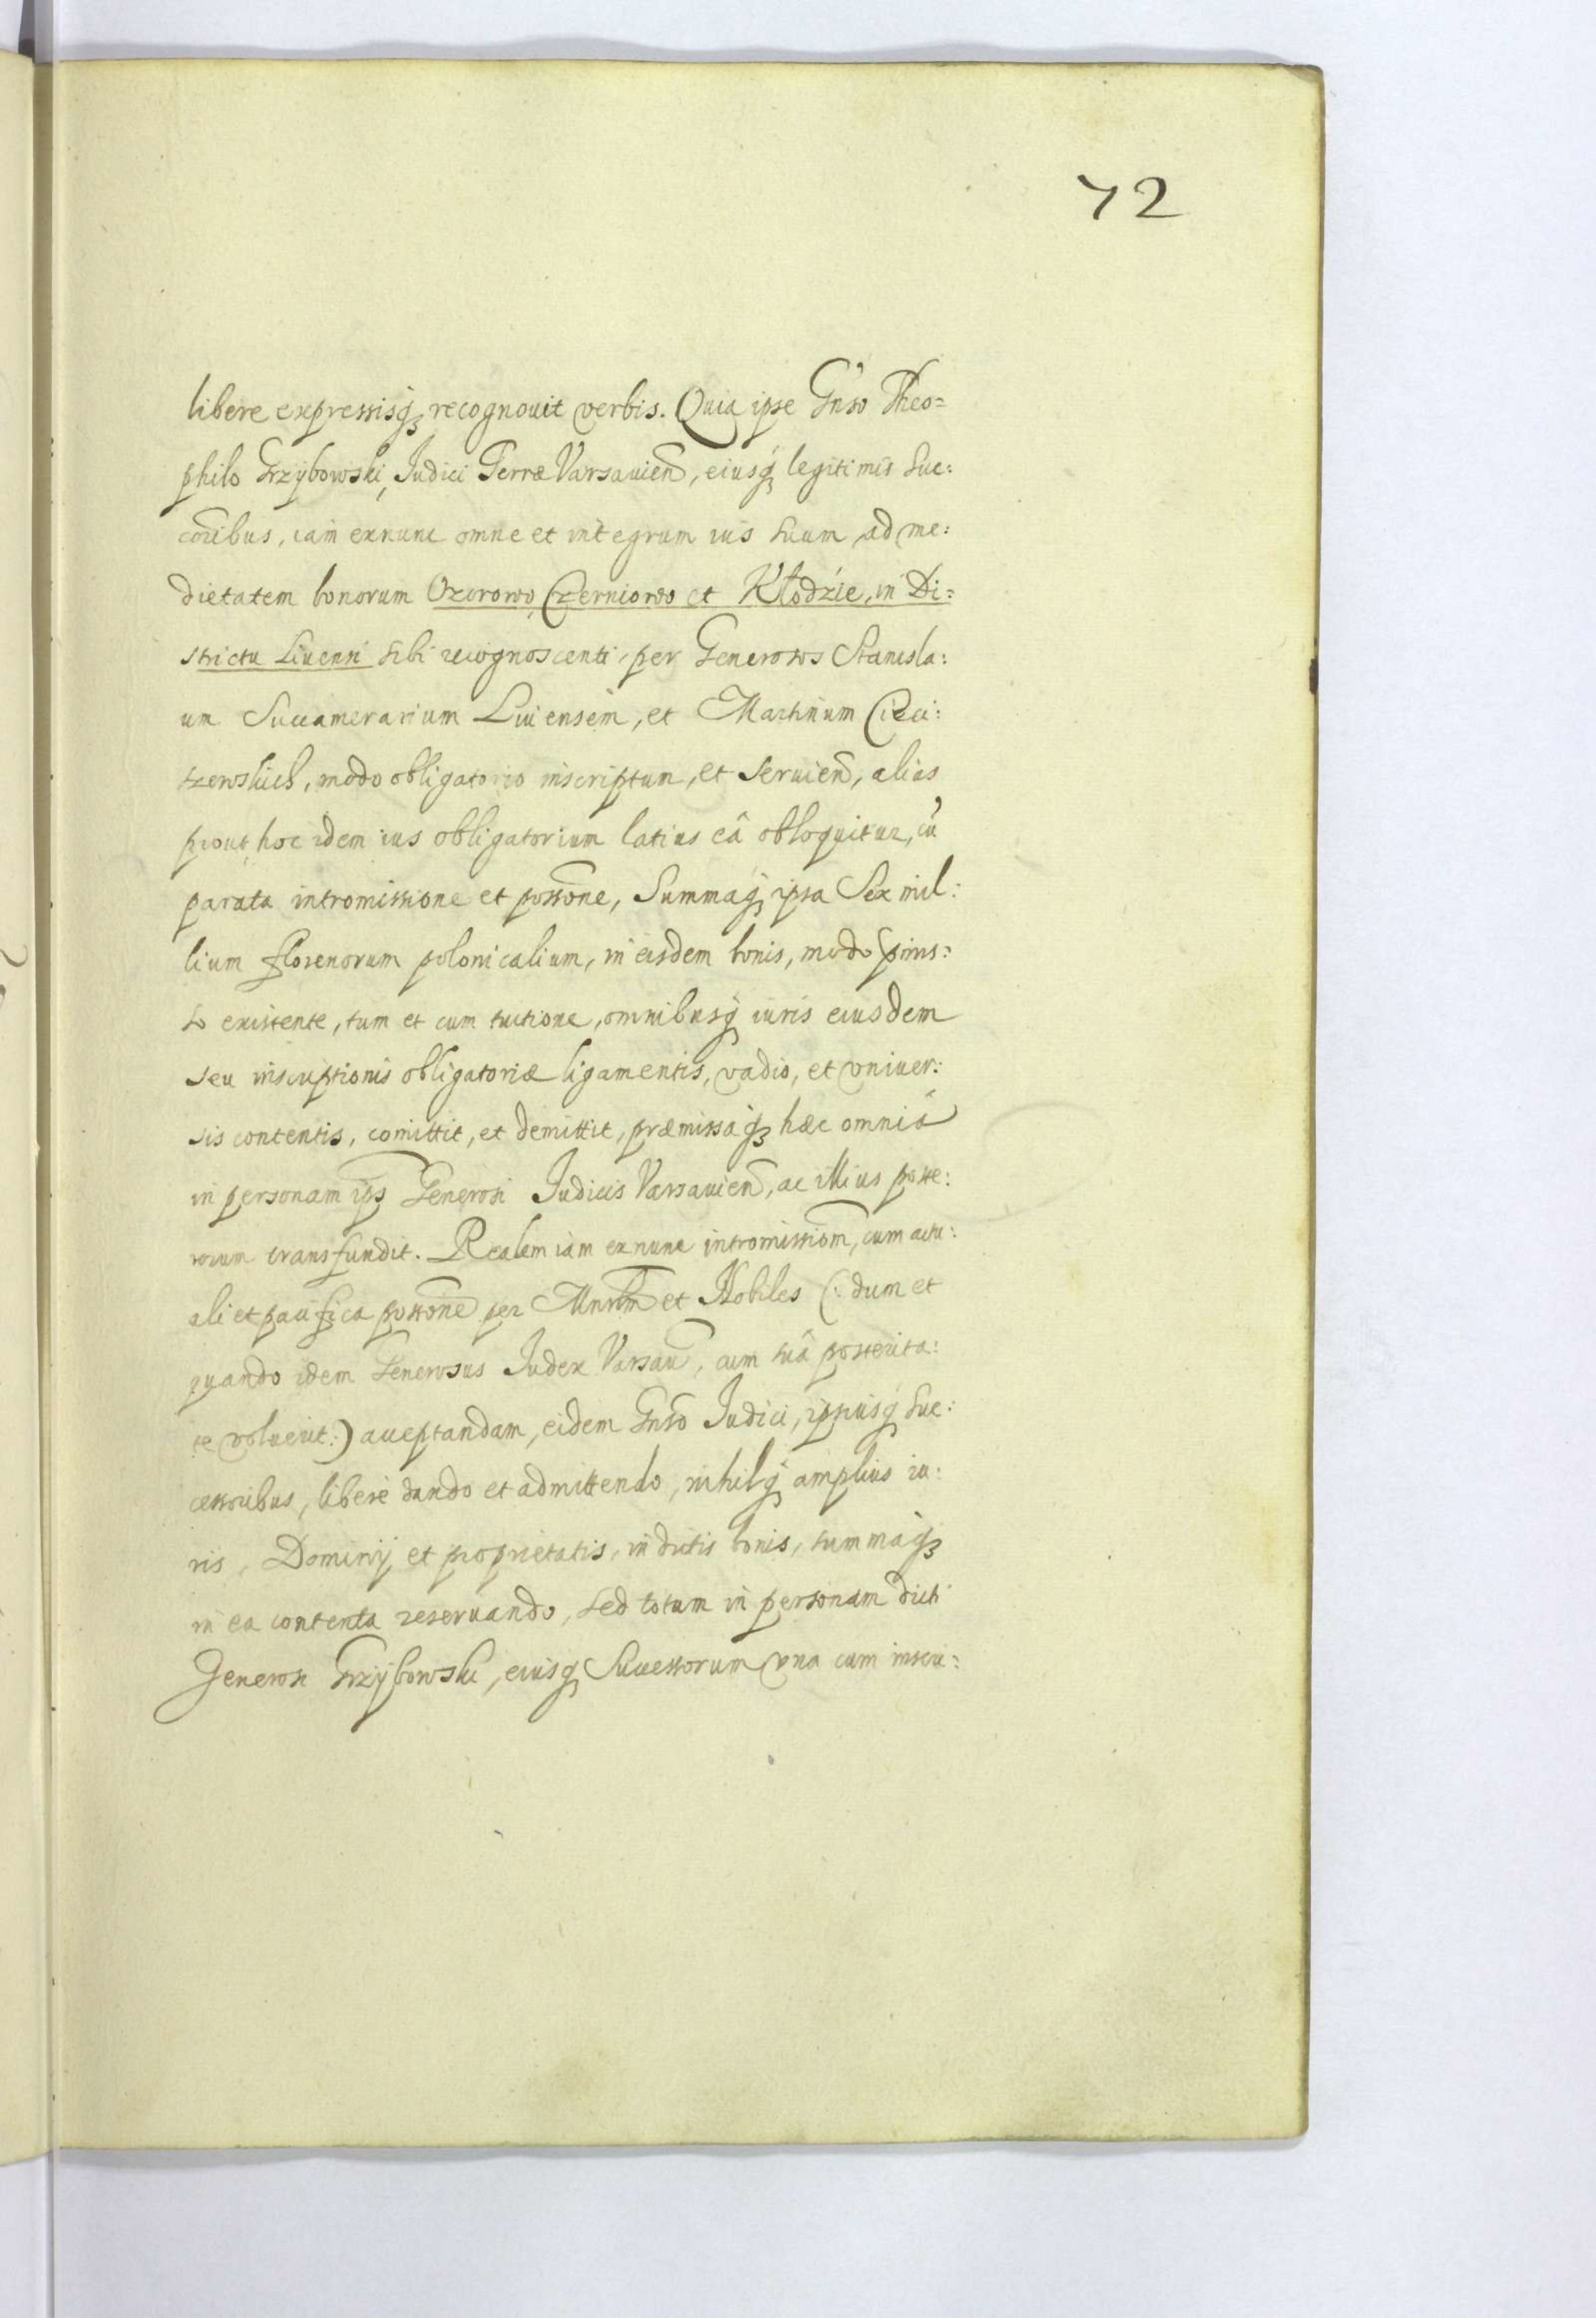 72
libere expressisq₃ recognouit verbis. Quia ipse Gnso Theo=
philo Grzybowski, Judici Terræ Varsauien, eiusq₃ legitimis Suc:
coribus, iam exnunc omne et integrum ius suum ad me:
dietatem bonorum Ozorowo, Czerniowo et Kłodzie, in Di:
strictu Liuensi sibi recognoscenti, per Generosos Stanisla:
um Succamerarium Liuensem, et Martinum Cieci:
szewskich, modo obligatorio inscriptum, et seruien, alias
prout hoc idem ius obligatorium latius eâ obloquitur, cū
parata intromissione et possone, Summaq₃ ipsa Sex mil:
lium florenorum polonicalium, in eisdem bonis, modo pmis:
so existente, tum et cum tuitione, omnibusq₃ iuris eiusdem
seu inscriptionis obligatoriæ ligamentis, vadio, et vniuer:
sis contentis, comittit, et demittit, præmissaq₃ hæc omniâ
in personam ips Generosi Judicis Varsauien, ac illius poste:
rorum transfundit. Realem iam exnunc intromissiom, cum actu:
ali et pacifica possone per Mnrlm et Nobiles (: dum et
quando idem Generosus Judex Varsau, cum suâ posterita:
te voluerit :) acceptandam, eidem Gnso Judici, ipsiusq₃ Suc:
cessoribus, libere dando et admittendo, nihilq₃ amplius iu:
ris, Dominij et proprietatis, in dictis bonis, summaq₃
in ea contenta reseruando, sed totum in personam dicti
Generosi Grzybowski, eiusq₃ Successorum vna cum inscri: